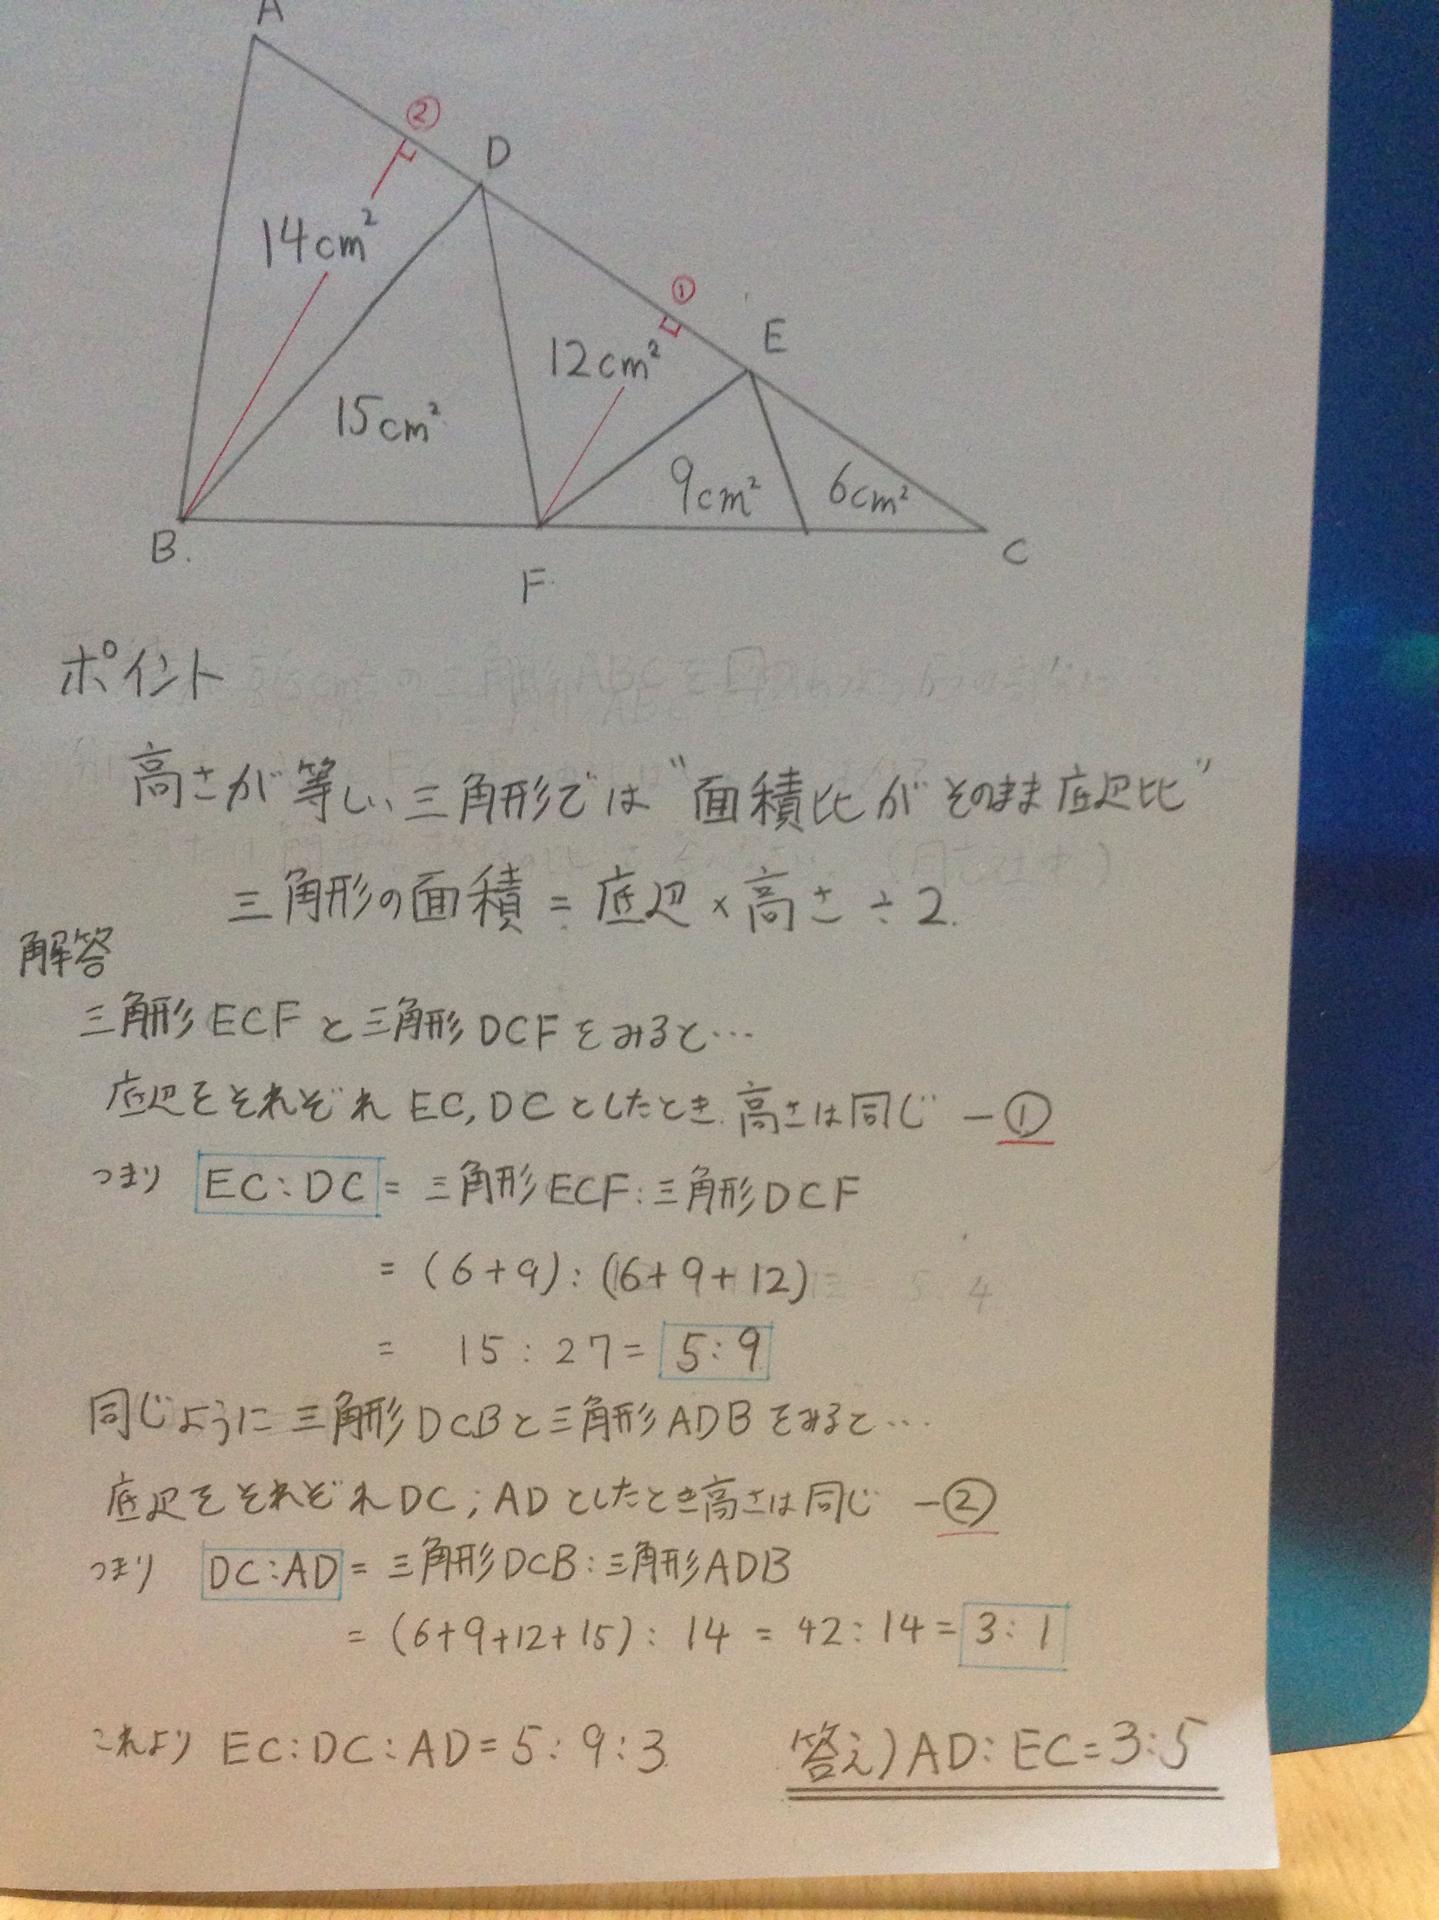 A
②
D
14cm²
①
E
12cm²
15cm²
9cm²
6cm²
B.
C
F
ポイント
高さが等しい三角形では"面積比がそのまま底辺比"
三角形の面積 = 底辺 × 高さ ÷ 2.
解答
三角形ECFと三角形DCFをみると…
底辺をそれぞれEC, DCとしたとき高さは同じ ー①
つまり EC:DC = 三角形ECF:三角形DCF
= (6+9):(6+9+12)
= 15:27 = 5:9
同じように三角形DCBと三角形ADBをみると…
底辺をそれぞれDC, ADとしたとき高さは同じ ー②
つまり DC:AD = 三角形DCB:三角形ADB
= (6+9+12+15):14 = 42:14 = 3:1
これより EC:DC:AD=5:9:3
答え)AD:EC=3:5